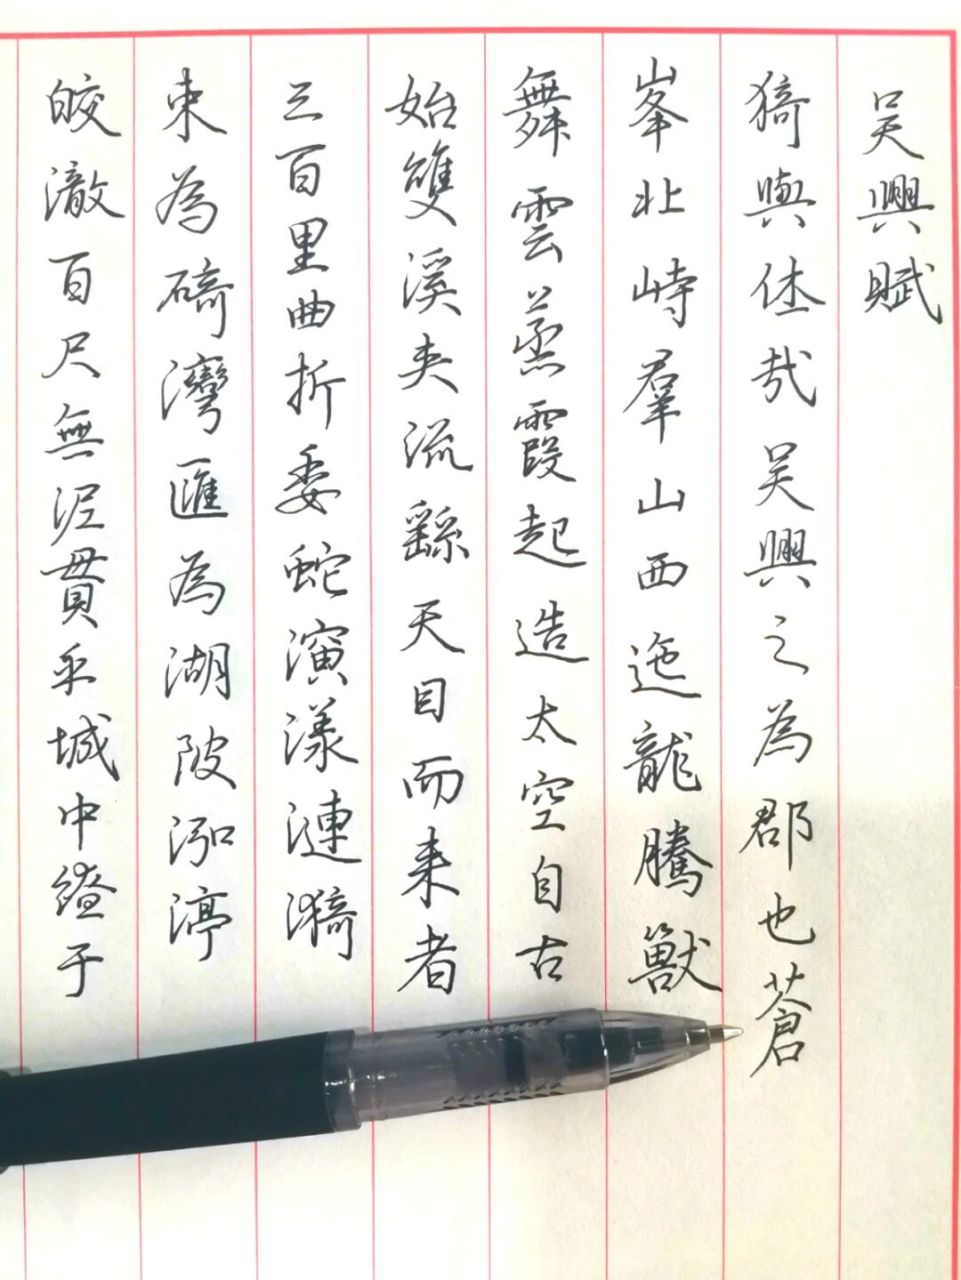 吳興賦
猗與休哉吳興之為郡也蒼
峯北峙羣山西迤龍騰獸
舞雲蒸霞起造太空自古
始雙溪夾流繇天目而来者
三百里曲折委蛇演漾漣漪
束為碕灣匯為湖陂泓渟
皎澈百尺無泥貫乎城中繚于